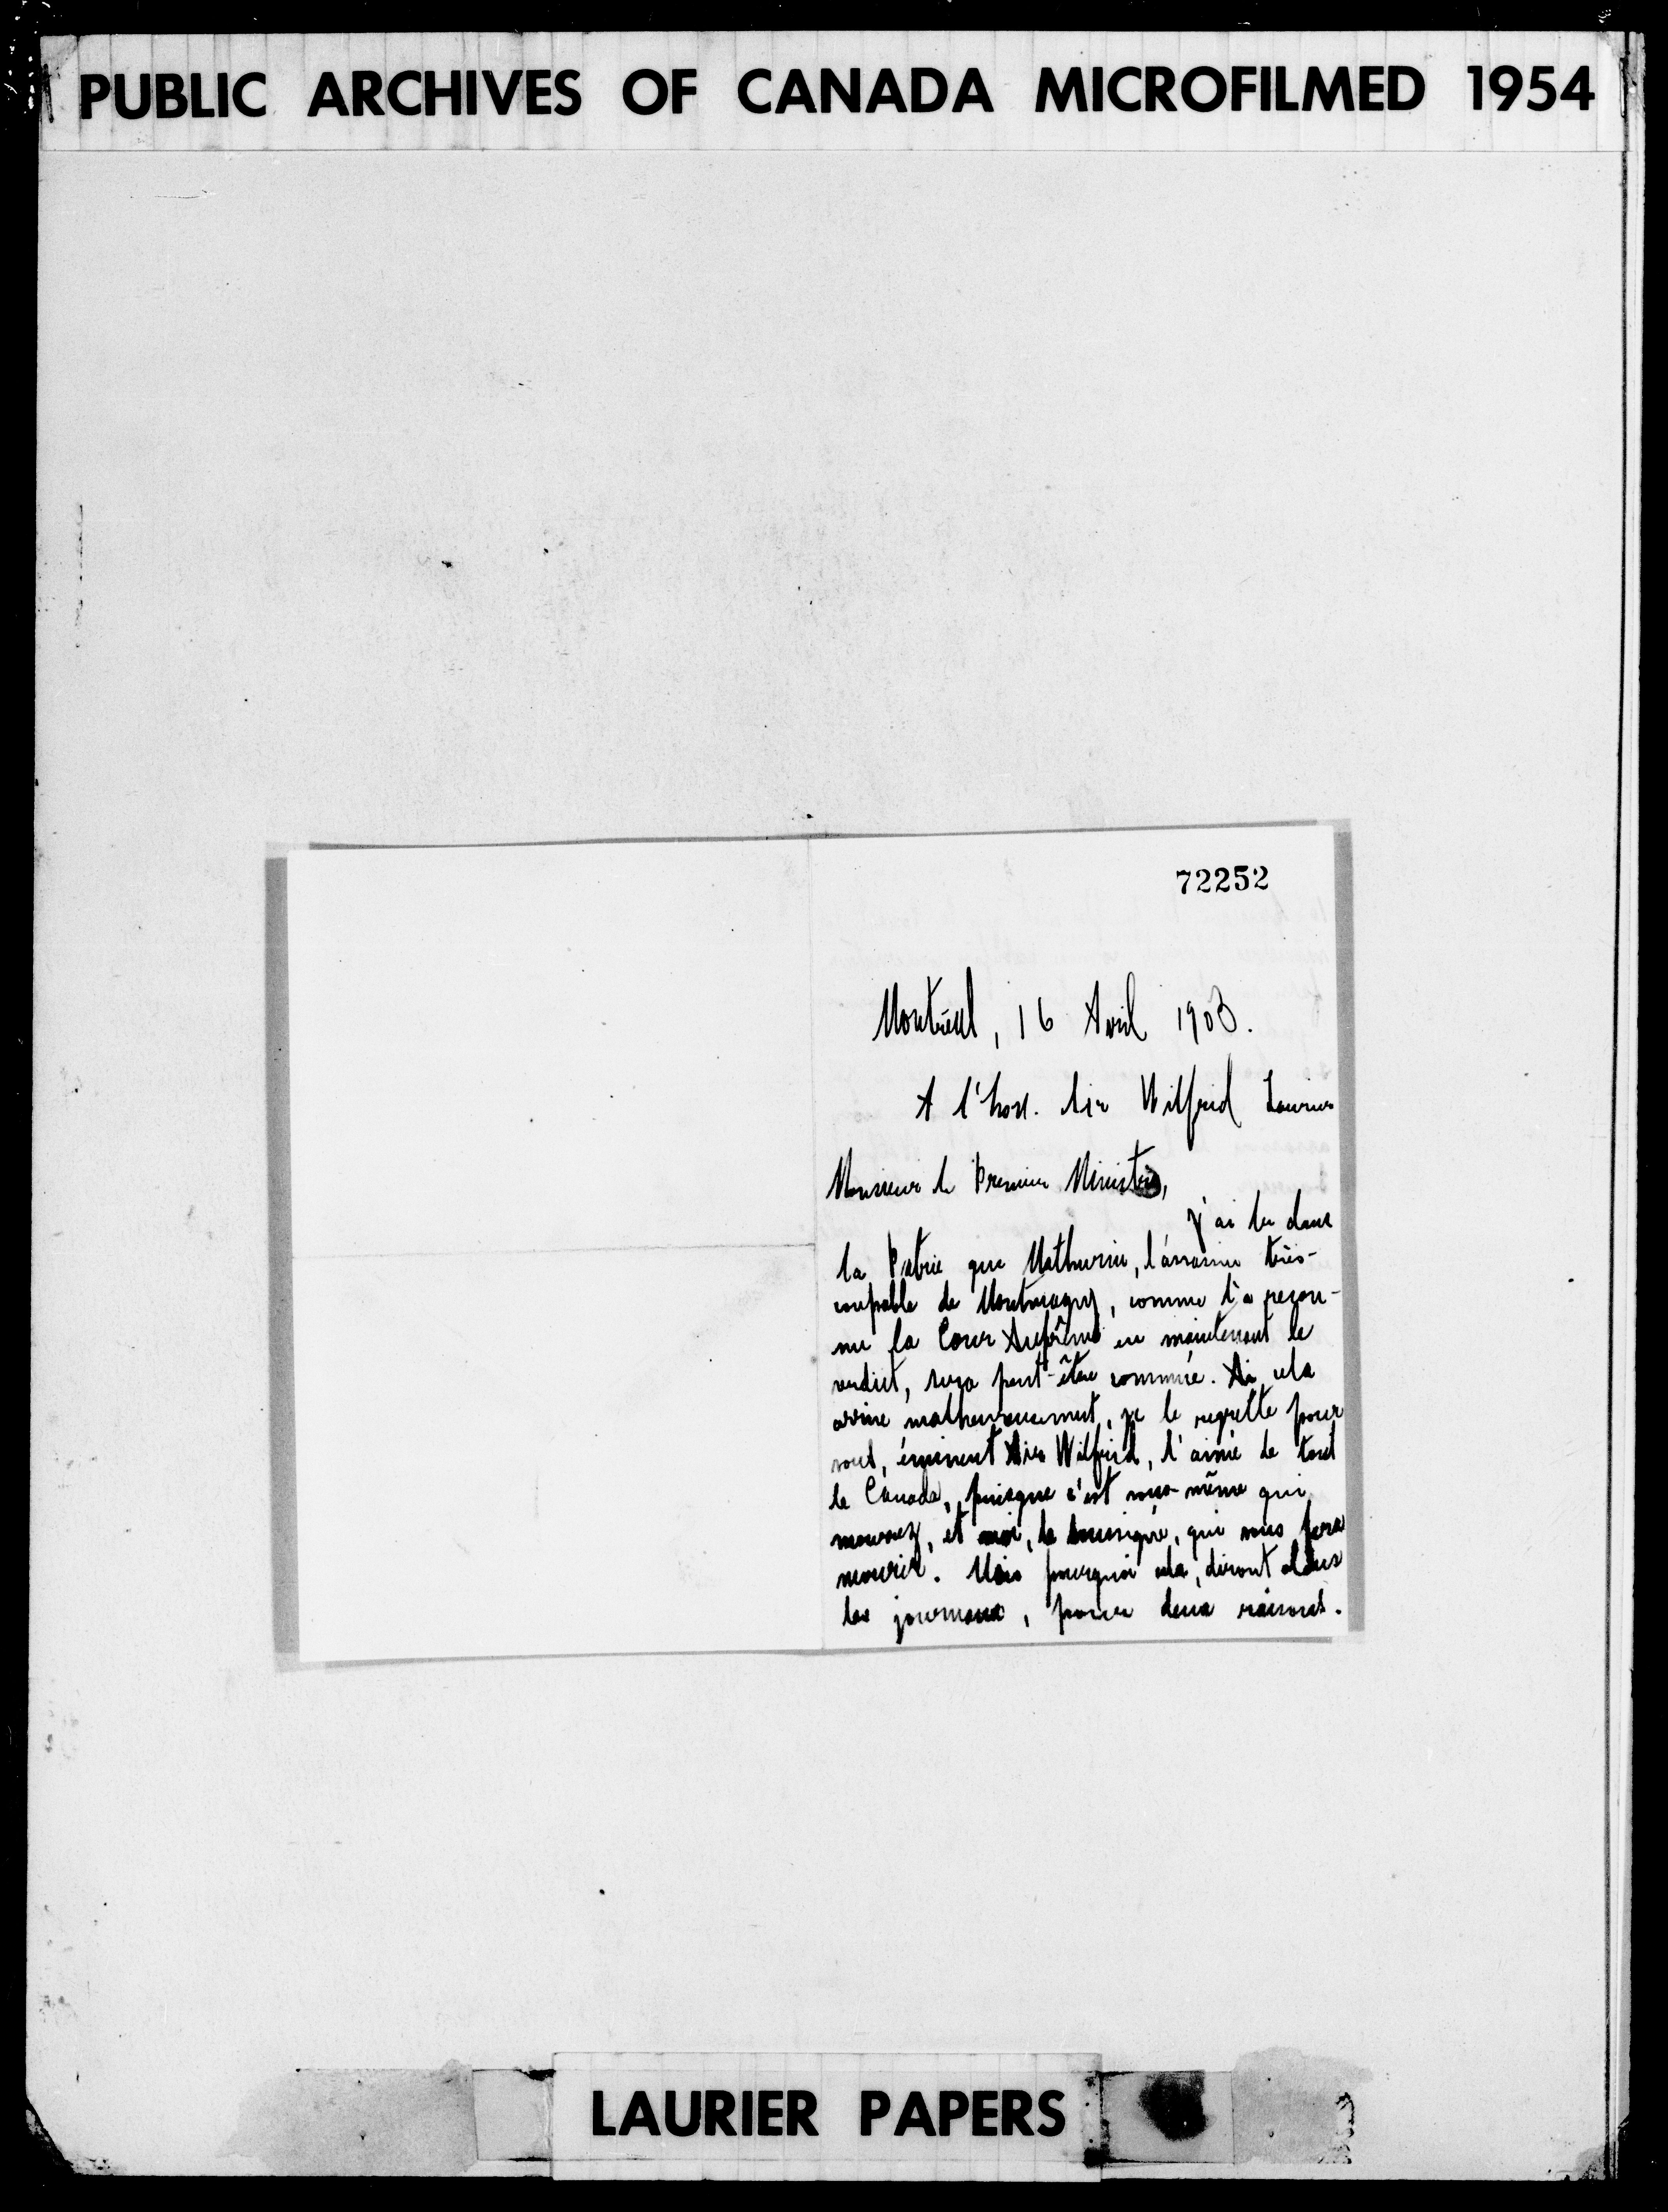 PUBLIC ARCHIVES OF CANADA MICROFILMED 1954
72252
Montréal, 16 Avril 1903.
A l'hon. Sir Wilfrid Laurier
Monsieur le Premier Ministre,
J'ai lu dans
la Patrie que Mathurin, l'assassin très-
coupable de Montmagny, comme l'a recon-
nu la Cour Suprême en maintenant le
verdict, sera peut-être commué. Si cela
arrive malheureusement, je le regrette pour
vous, éminent Sir Wilfrid, l'aimé de tout
le Canada, puisque c'est vous-même qui
mourrez, et moi, le soussigné, qui vous fera
mourir. Mais pourquoi cela, diront alors
les journaux, pour deux raisons.
LAURIER PAPERS